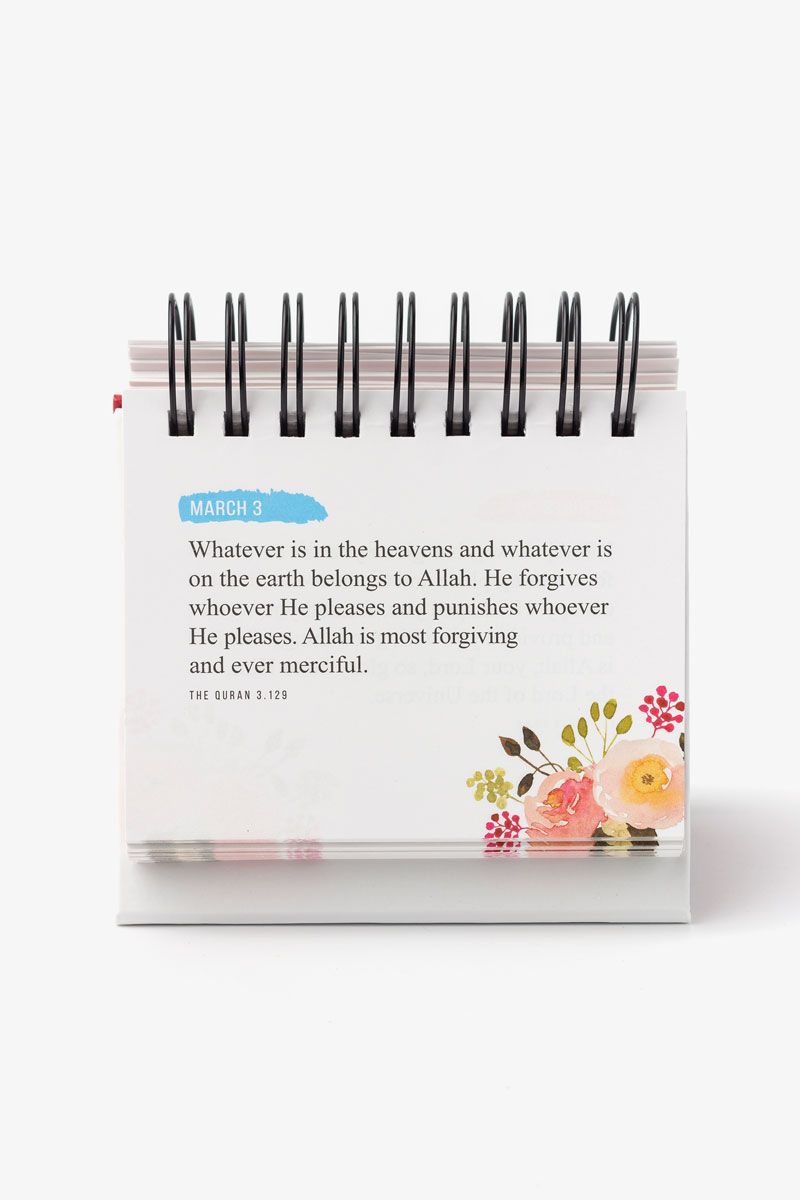 MARCH 3
Whatever is in the heavens and whatever is
on the earth belongs to Allah. He forgives
whoever He pleases and punishes whoever
He pleases. Allah is most forgiving
and ever merciful.
THE QURAN 3.129